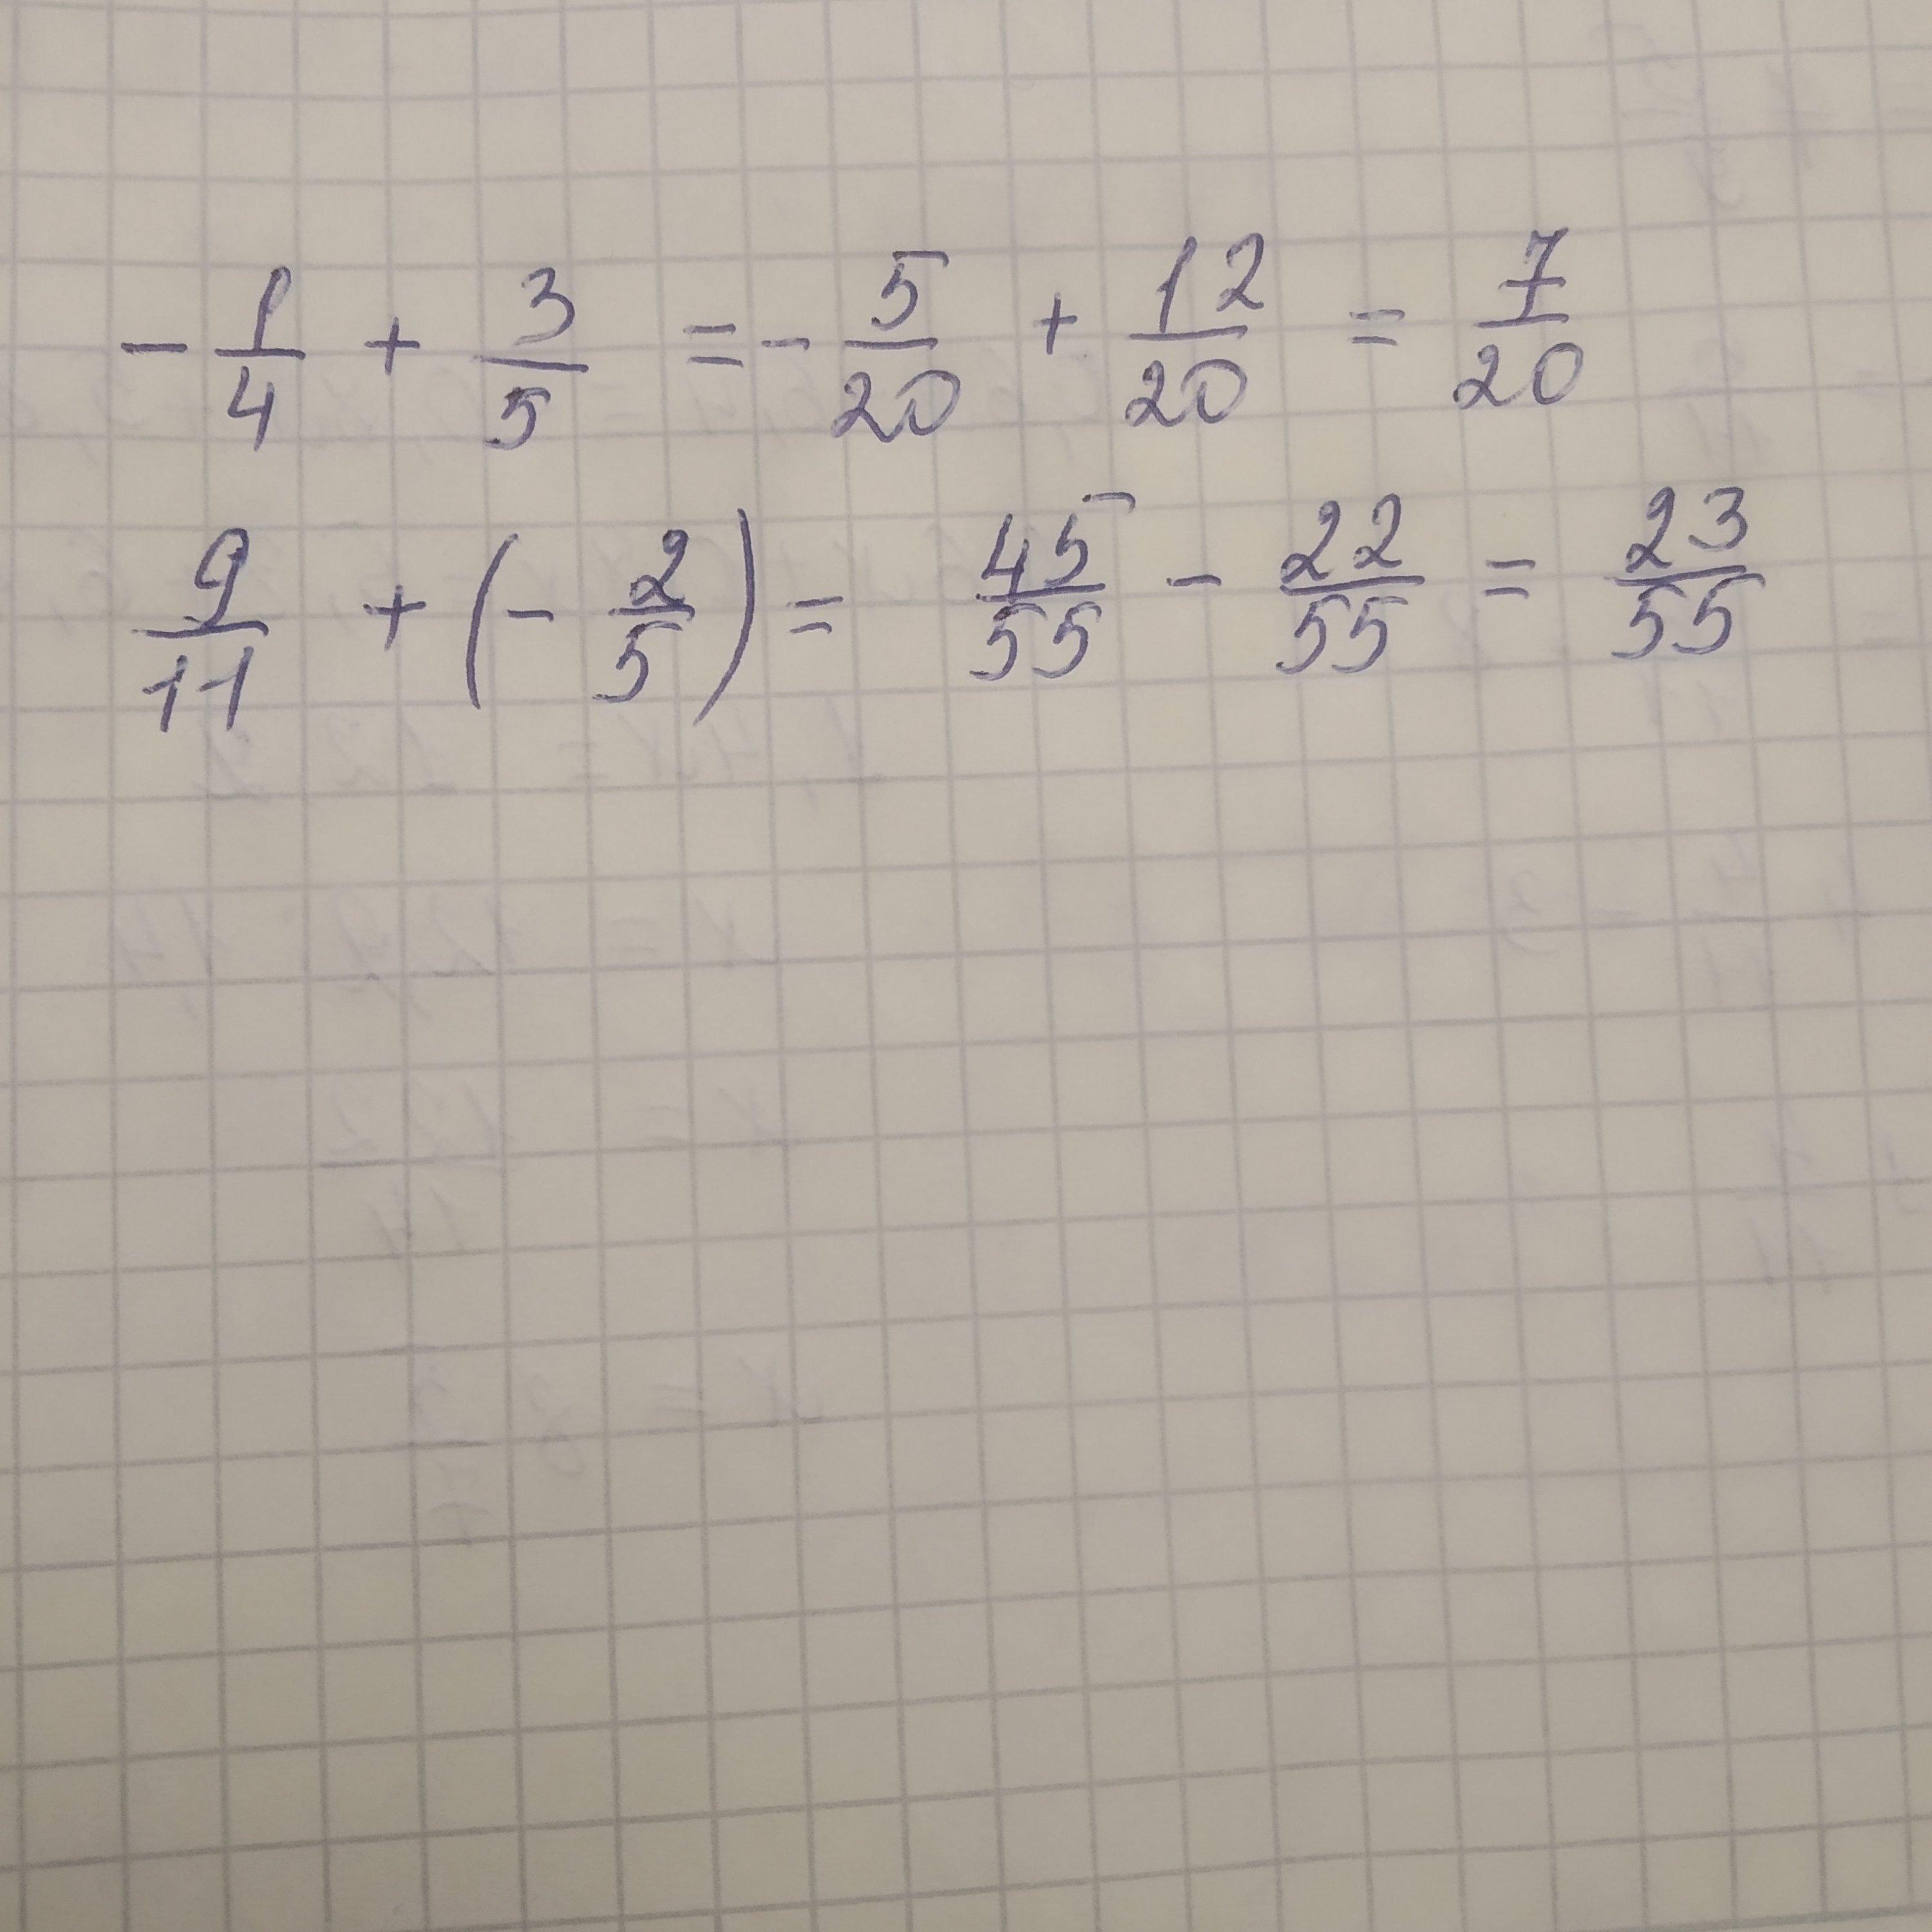 - 1/4 + 3/5 = - 5/20 + 12/20 = 7/20
9/11 + (- 2/5) = 45/55 - 22/55 = 23/55